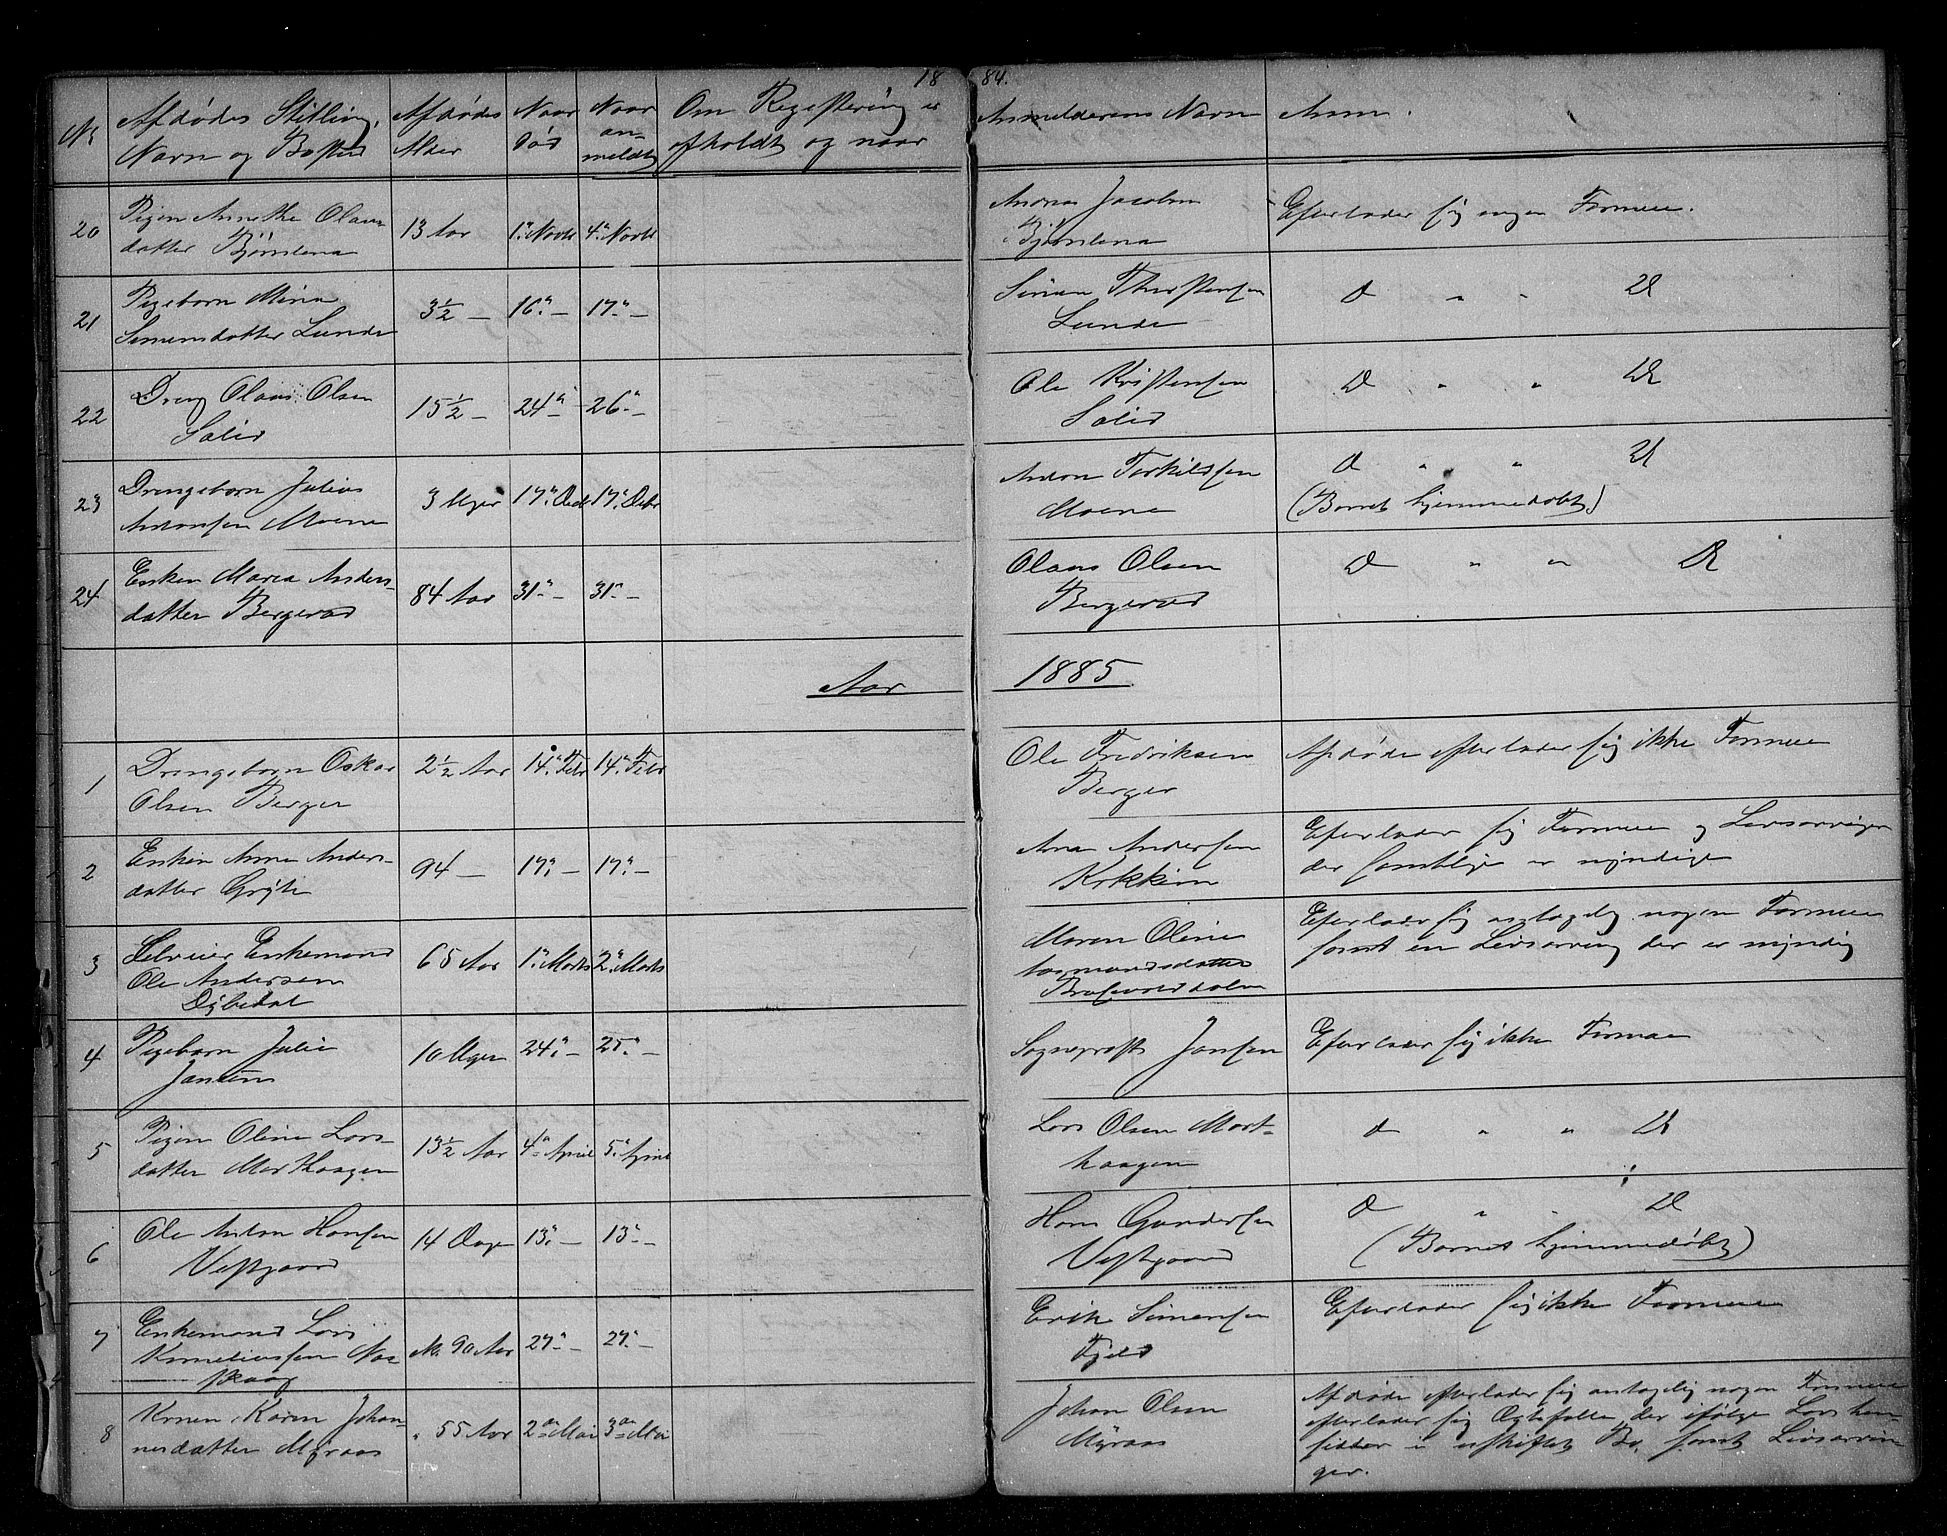 18 84.
No
Afdødes Stilling,
Navn og Bosted
Afdødes
Alder
Naar
død
Naar
an-
meldt
Om Registrering er
afholdt og naar
Anmelderens Navn
Anm.
20
Pigen Annethe Olaus
datter Bjørnlena
13 Aar
1. Novb
4. Novb
Andreas Jacobsen
Bjørnlena
Efterlader sig ingen Formue.
21
Pigebarn Mina
Simensdatter Lunde
3½ —
16. —
17. —
Simen Thorstensen
Lunde
d " " D
22
Dreng Olaus Olsen
Salid
15½ —
24. —
26. —
Ole Kristensen
Salid
D " " D
23
Drengebarn Julius
Antonsen Moene
3 Uger
17. Decb
17. Decbr
Anton Torkildsen
Moene
d " " D
(Barnet hjemmedøbt)
24
Enken Maren Anders
datter Bergerød
84 Aar
31. —
31. —
Olaus Olsen
Bergerød
D " " D
Aar 1885
1
Drengebarn Oskar
Olsen Berger
2½ Aar
14. Febr
14. Febr
Ole Fredriksen
Berger
Afdøde efterlader sig ikke Formue
2
Enken Anne Anders-
datter Gryte
94 —
17. —
17. —
Andersen
Efterlader sig Formue og Livsarvinger
der samtlige er myndige
3
Selveier Enkemand
Ole Andersen
Dybedal
65 Aar
1. Marts
2. Marts
Maren Oline
Aasmundsdatter
Efterlader sig antagelig nogen Formue
samt en Livsarving der er myndig
4
Pigebarn Julie
Jansen
10 Uger
24. —
25. —
Sogneprest Jansen
Efterlader sig ikke Formue
5
Pigen Oline Lars-
datter Morthaagen
13½ Aar
4. April
5. April
Lars Olsen Mort-
haagen
d " " D
6
Ole Anton Hansen
Vestgaard
14 Dage
13. —
13. —
Hans Gundersen
Vestgaard
D " " D
(Barnet hjemmedøbt)
7
Enkemand Lars
Korneliussen Nas
skaug
90 Aar
27. —
27. —
Erik Simensen
Fjeld
Efterlader sig ikke Formue
8
Konen Karen Johan-
nesdatter Myraas
" 55 Aar
2den Mai
3die Mai
Johan Olsen
Myraas
Afdøde efterlader sig antagelig nogen Formue
efterlader sig Ægtefælle, der ifølge Lov hen-
sidder i uskiftet Bo, samt Livsarvin
ger.